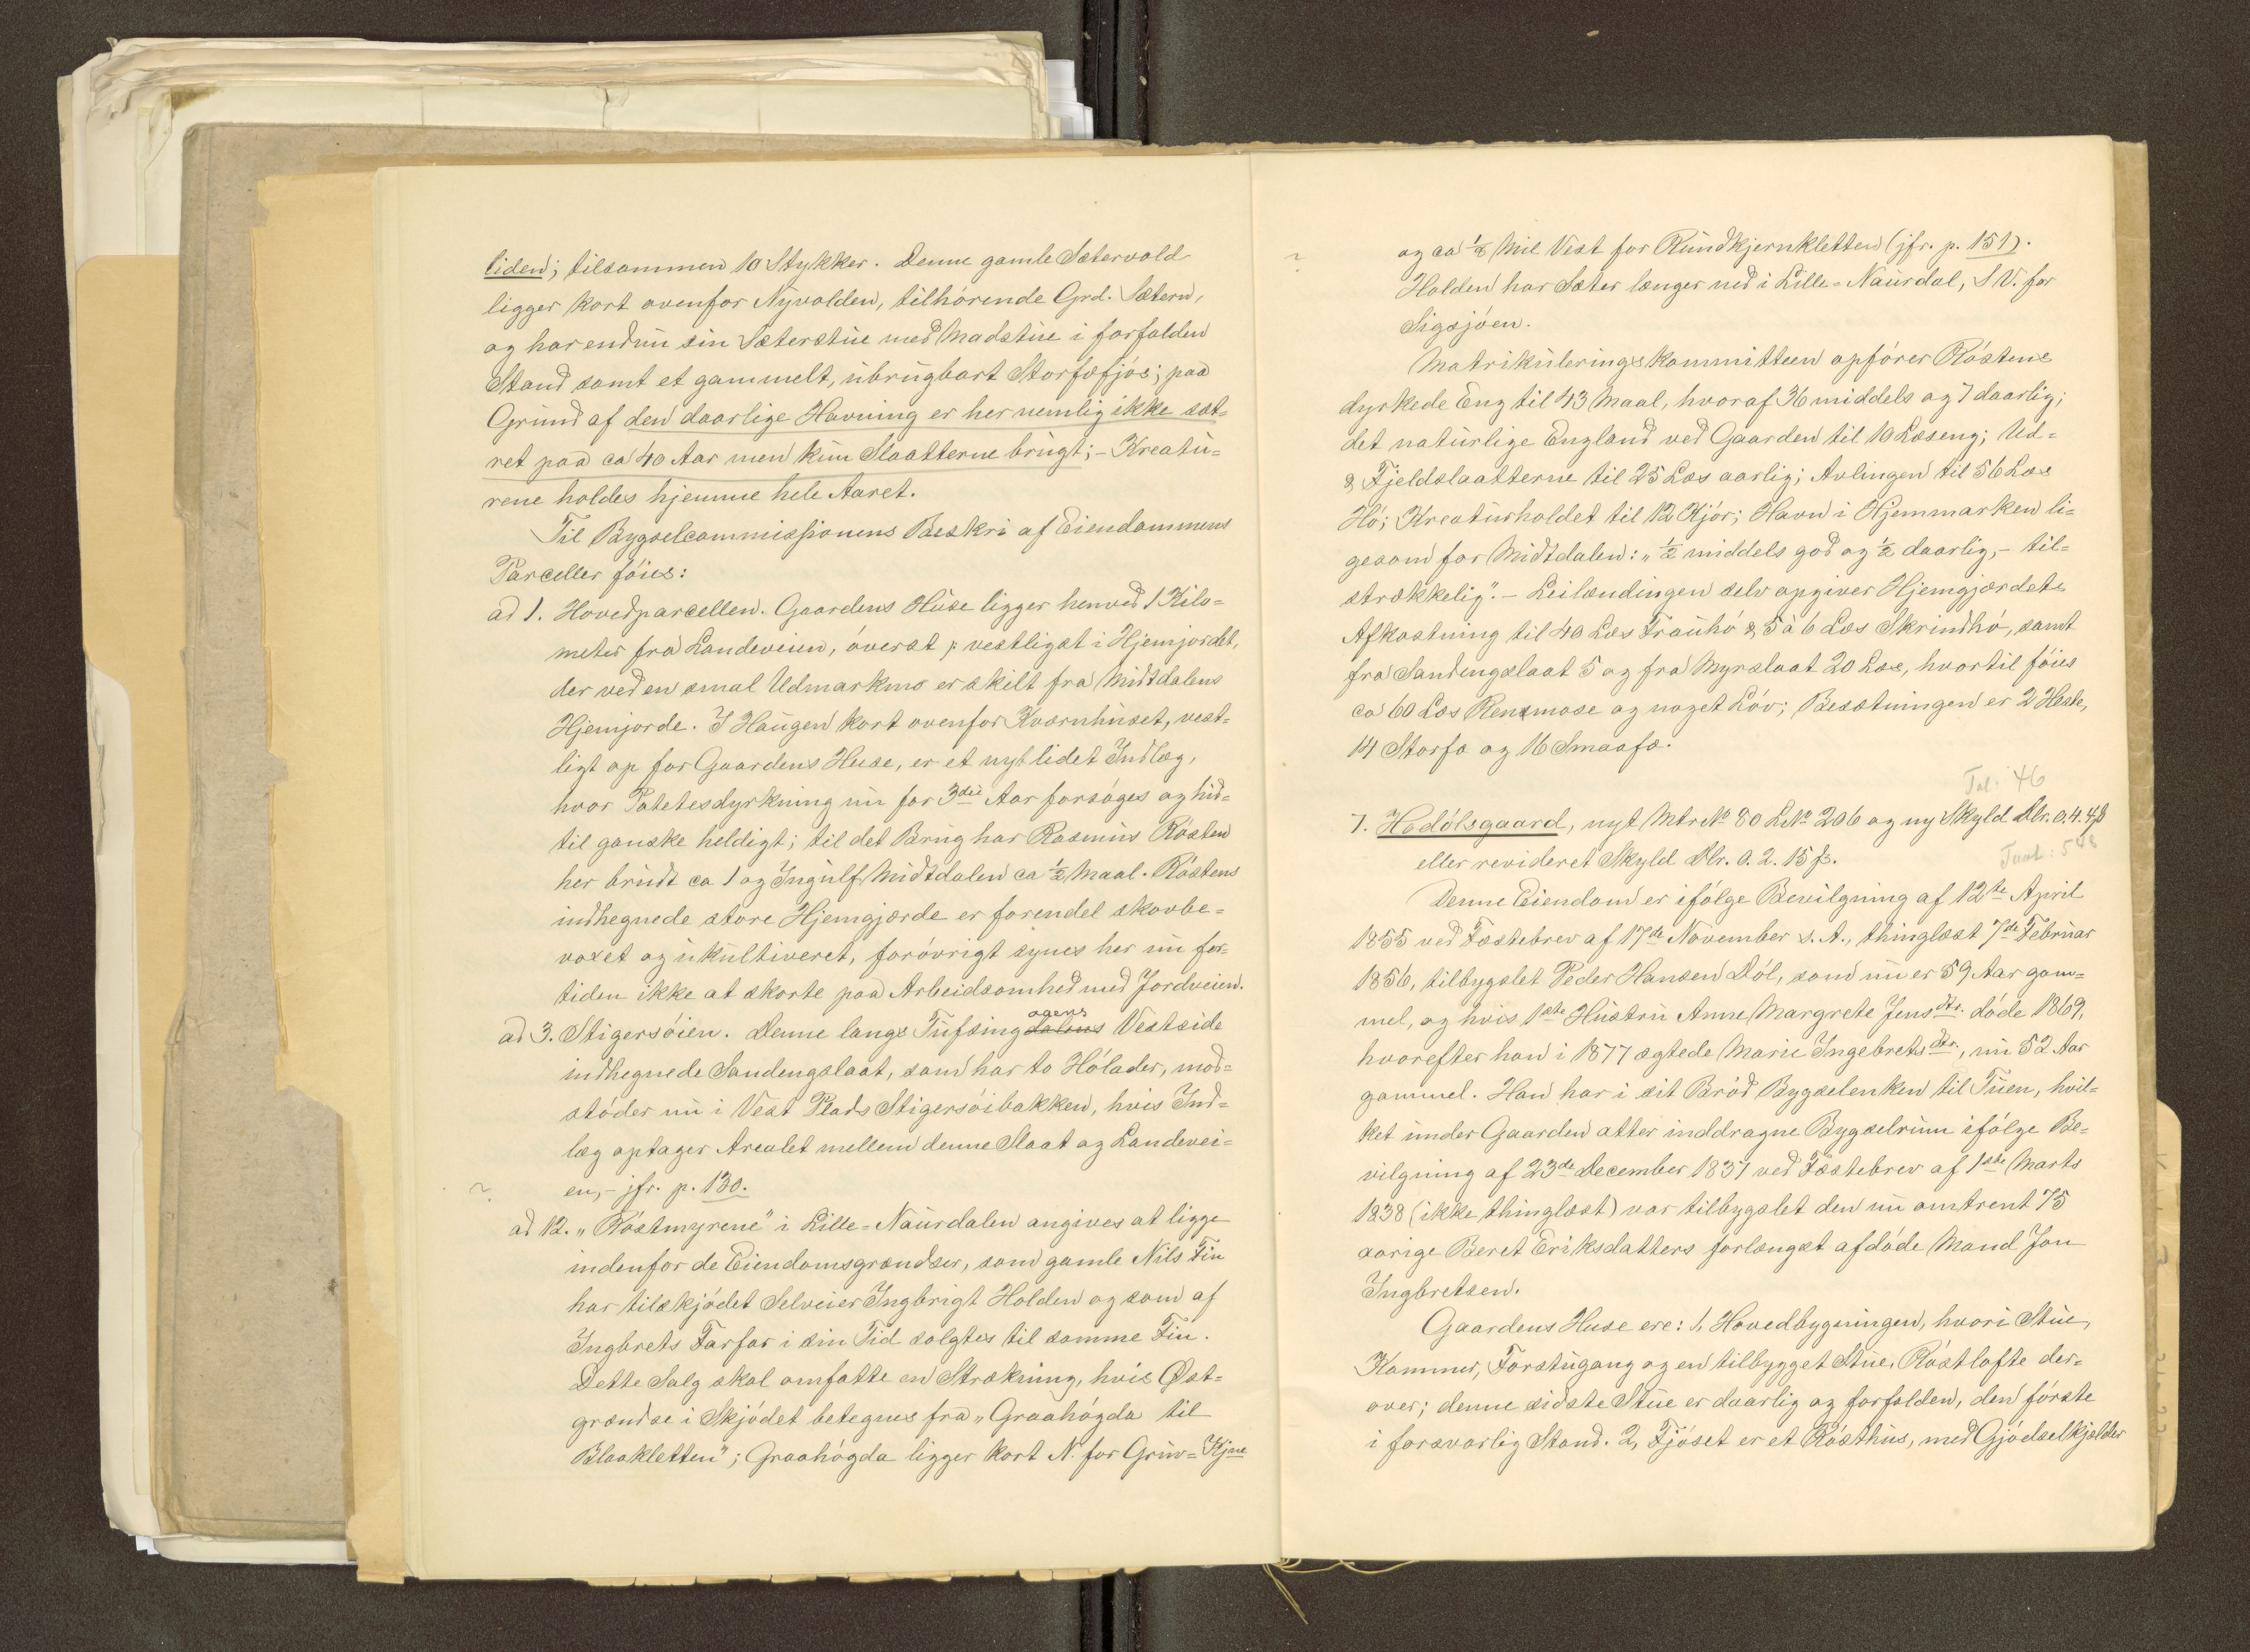 liden; tilsammen 10 Stykker. Denne gamle Sætervold
ligger kort ovenfor Nyvolden, tilhørende Grd. Sætern,
og har endnu sin Sæterstue med Madstue i forfalden
Stand samt et gammelt, ubrugbart Storfæfjøs; paa
Grund af den daarlige Havning er her nemlig ikke sæt=
ret paa ca 40 Aar men kun Slaatterne brugt; - Kreatu=
rene holdes hjemme hele Aaret.
Til Bygselcommissionens Beskri af Eiendommens
Parceller føies:
ad 1. Hovedparcellen. Gaardens Huse ligger henved 1 Kilo=
meter fra Landeveien, øverst & vestligst i Hjemjordet,
der ved en smal Udmarkmo er skilt fra Midtdalens
Hjemjorde. I Haugen kort ovenfor Kværnhuset, vest=
ligt op for Gaardens Huse, er et nyt lidet Indlæg,
hvor Potetesdyrkning nu for 3die Aar forsøges og hid=
til ganske heldigt; til det Brug har Rasmus Røsten
her brudt ca 1 og Ingulf Midtdalen ca ½ Maal. Røstens
indhegnede store Hjemgjærde er forendel skovbe=
voxet og ukultiveret, forøvrigt synes her nu for=
tiden ikke at skorte paa Arbeidsomhed med Jordveien.
ad 3. Stigersøien. Denne langs Tufsingdalens aaens Vestside
indhegnede Sandengslaat, som har to Hølader, mod=
støder nu i Vest Plads Stigersøibakken, hvis Ind=
læg optager Arealet mellem denne Slaat og Landevei=
? en, - jfr. p. 130.
ad 12. "Røstmyrene" i Lille=Naurdalen angives at ligge
indenfor de Eiendomsgrændser, som gamle Nils Fin
har tilskjødet Selveier Ingbrigt Holden og som af
Ingbrets Farfar i sin Tid solgtes til samme Fin.
Dette Salg skal omfatte en Strækning, hvis Øst=
grændse i Skjødet betegnes fra "Graahøgda til
Blaakletten"; Graahøgda ligger kort N. for Gruv=Kjne
? og ca ½ Mil Vest for Rundkjernkletten (jfr. p. 151).
Holden har Sæter længer ned i Lille=Naurdal, S V. for
Sigsjøen.
Matrikuleringskommitteen opfører Røstens
dyrkede Eng til 43 Maal, hvoraf 36 middels og 7 daarlig;
det naturlige England ved Gaarden til 10 Læseng; Ud=
& Fjeldslaatterne til 25 Læs aarlig; Avlingen til 56 Læs
Hø; Kreaturholdet til 12 Kjør; Havn i Hjemmarken li=
gesom for Midtdalen: "½ middels god og ½ daarlig, - til=
strækkelig". - Leilændingen selv opgiver Hjemgjærdets
Afkastning til 40 Læs Frauhø & 5 à 6 Læs Skrindhø, samt
fra Sandengslaat 5 og fra Myrslaat 20 Læs, hvortil føies
ca 60 Læs Rensmose og noget Løv; Besætningen er 2 Heste,
14 Storfæ og 16 Smaafæ.
Tal: 46
7. Hodølsgaard, nyt MtrNo 80 LNo 206 og ny Skyld Dlr. 0.4.4ß
eller revideret Skyld Dlr. 0. 2. 15 ß.
Denne Eiendom er ifølge Bevilgning af 12te April
1855 ved Fæstebrev af 17de November s. A., thinglæst 7de Februar
1856, tilbygslet Peder Hansen Døl, som nu er 59 Aar gam=
mel, og hvis 1ste Hustru Anne Margrete Jensdtr. døde 1869,
hvorefter han i 1877 ægtede Marie Ingebretsdtr., nu 52 Aar
gammel. Han har i sit Brød Bygselenken til Tuen, hvil=
ket under Gaarden atter inddragne Bygselrum ifølge Be=
vilgning af 23de December 1837 ved Fæstebrev af 1ste Marts
1838 (ikke thinglæst) var tilbygslet den nu omtrent 75
aarige Beret Eriksdatters forlængst afdøde Mand Jon
Ingbretsen.
Gaardens Huse ere: 1, Hovedbygningen, hvori Stue,
Kammer, Forstugang og en tilbygget Stue, Røstlofte der=
over; denne sidste Stue er daarlig og forfalden, den første
i forsvarlig Stand. 2, Fjøset er et Røsthus, med Gjødselkjelder